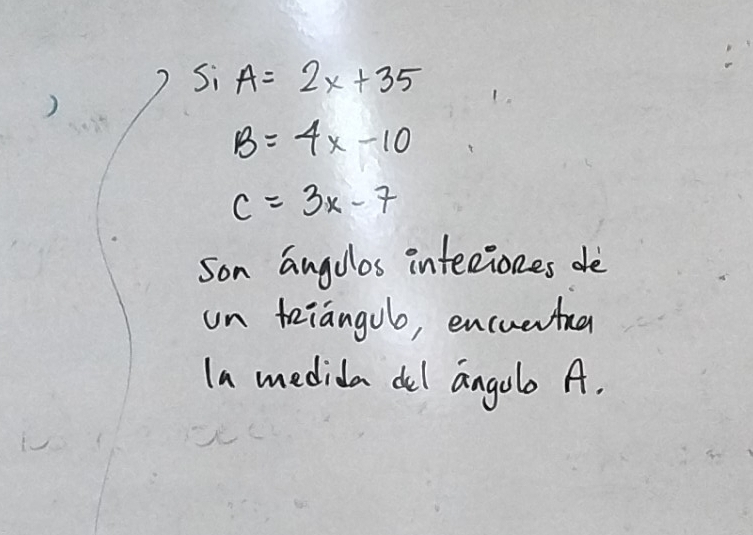 Si A= 2x+35
B= 4x-10
C= 3x-7
son ángulos interiores de
un triángulo, encuentra
la medida del ángulo A.